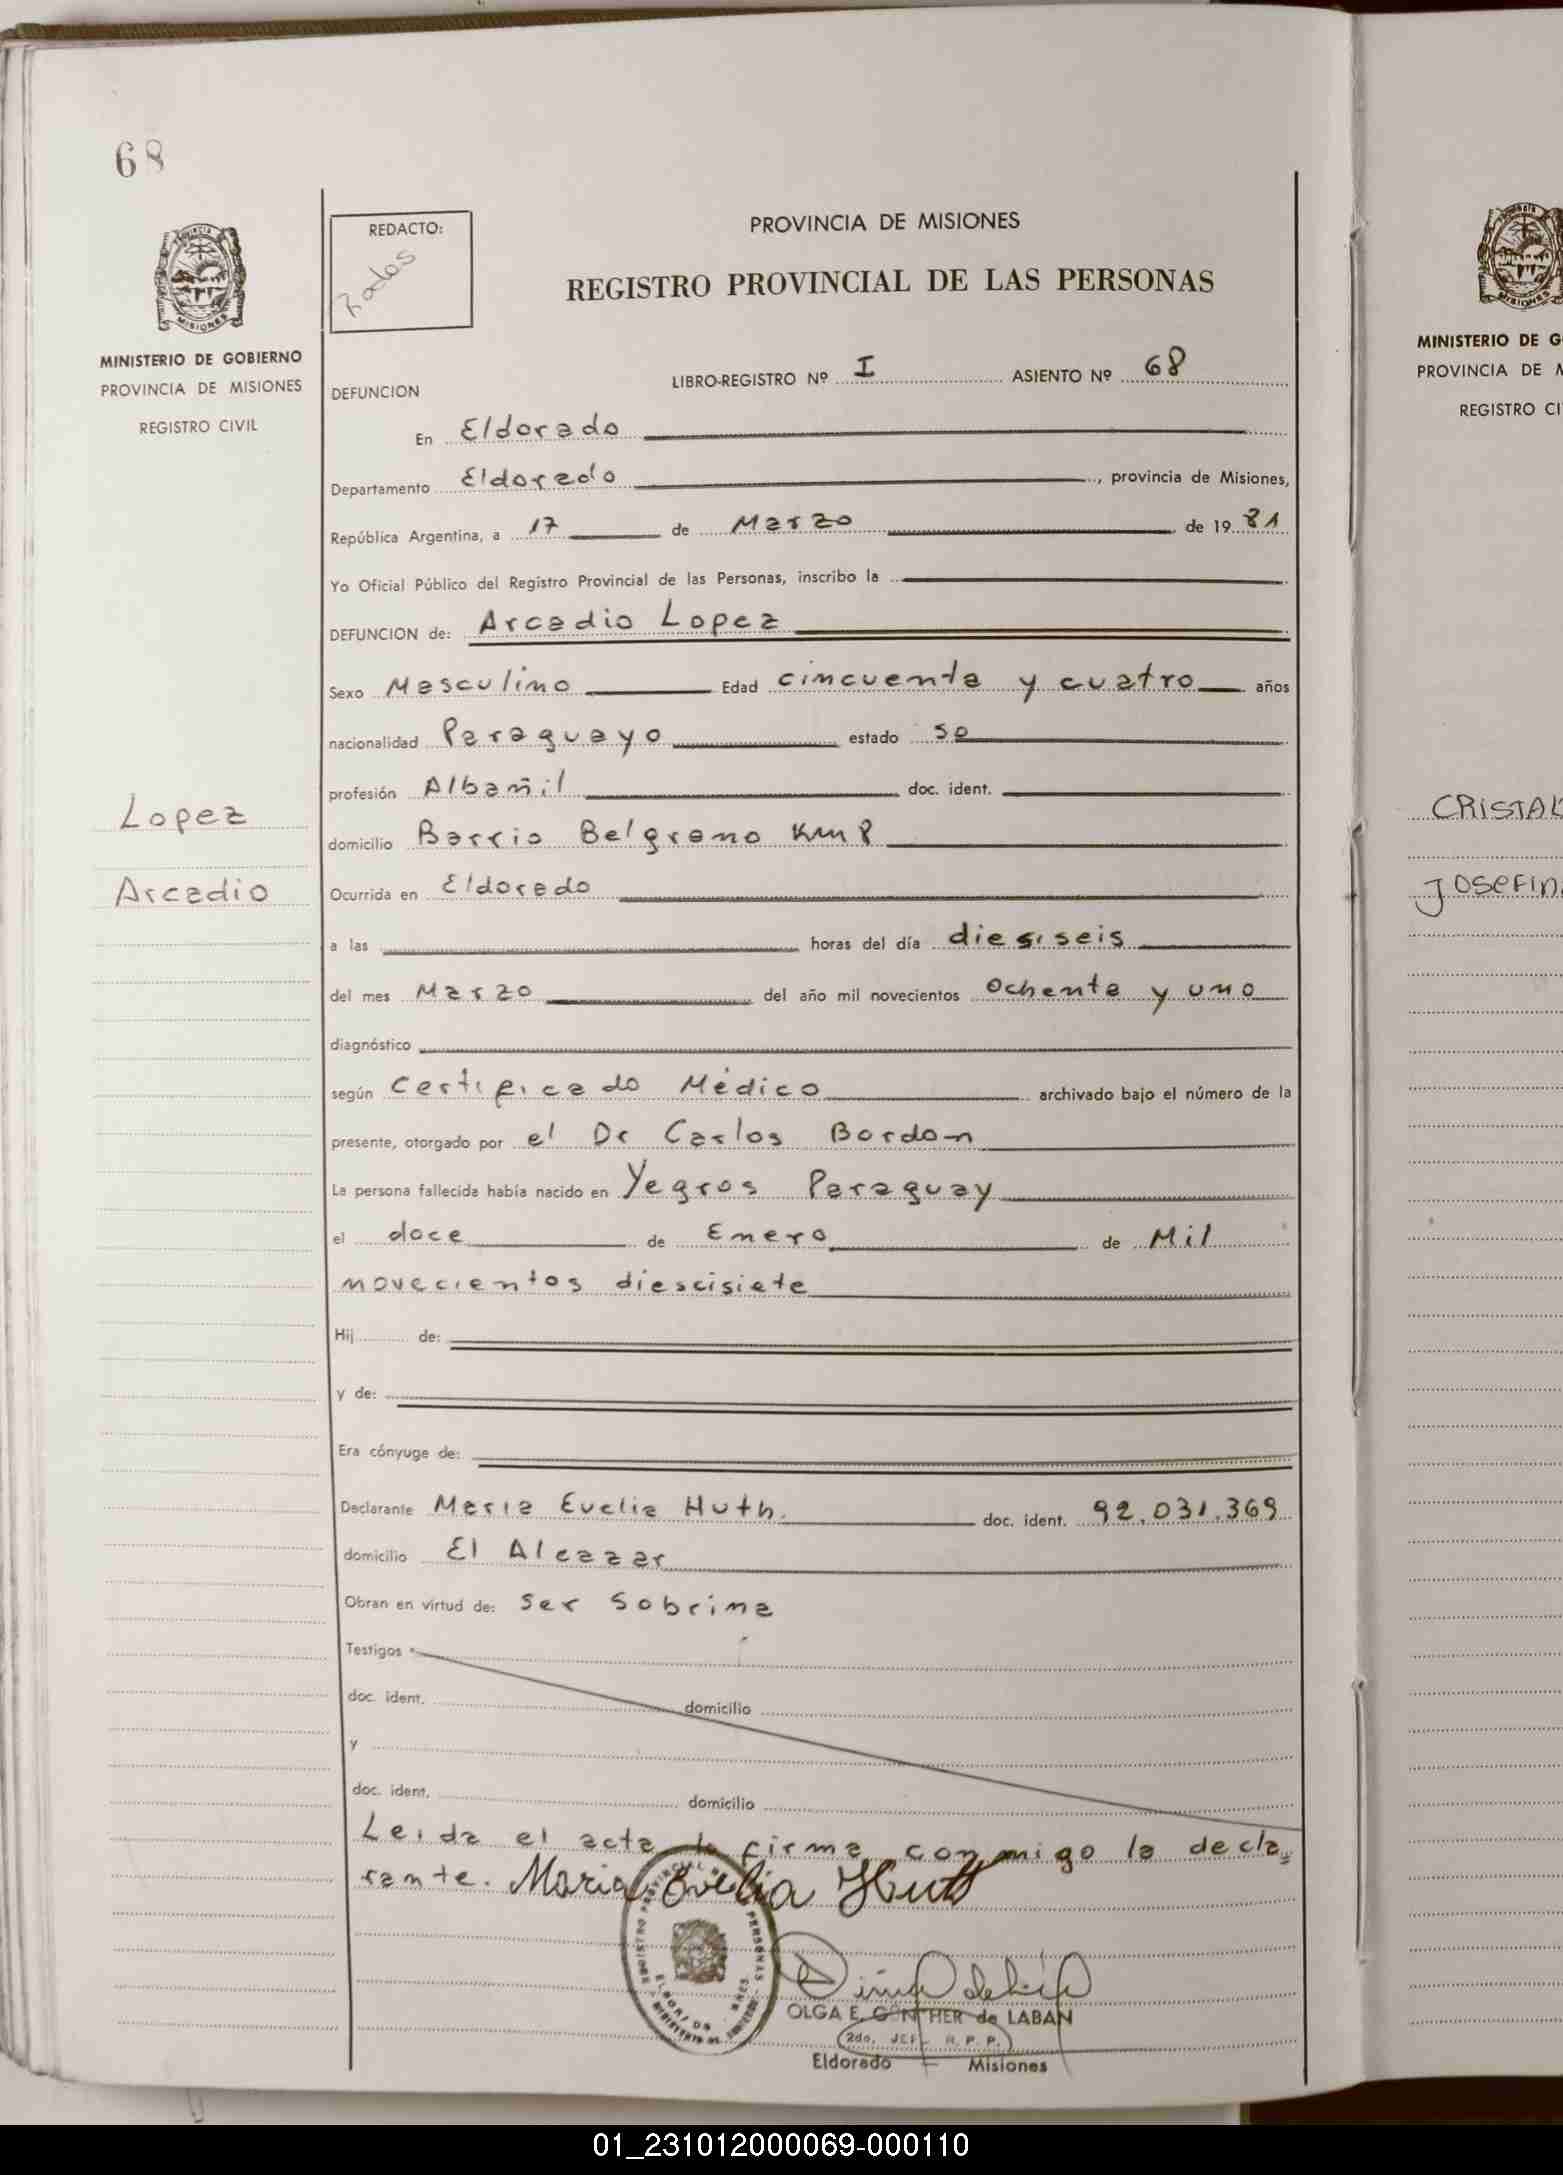 68
REDACTO:
Rodas
PROVINCIA DE MISIONES
REGISTRO PROVINCIAL DE LAS PERSONAS
MISIONES
MINISTERIO DE GOBIERNO
PROVINCIA DE MISIONES
REGISTRO CIVIL
DEFUNCION
LIBRO-REGISTRO Nº I ASIENTO Nº 68
En Eldorado
Departamento Eldorado, provincia de Misiones,
República Argentina, a 17 de Marzo de 19 81
Yo Oficial Público del Registro Provincial de las Personas, inscribo la
DEFUNCION de: Arcadio Lopez
Sexo Masculino Edad cincuenta y cuatro años
nacionalidad Paraguayo estado so
profesión Albañil doc. ident.
Lopez
domicilio Barrio Belgrano Km 8
Arcadio
Ocurrida en Eldorado
a las horas del día diesiseis
del mes Marzo del año mil novecientos Ochenta y uno
diagnóstico
según Certificado Médico archivado bajo el número de la
presente, otorgado por el Dr Carlos Bordon
La persona fallecida había nacido en Yegros Paraguay
el doce de Enero de Mil
novecientos diescisiete
Hij de:
y de:
Era cónyuge de:
Declarante Maria Evelia Huth. doc. ident. 92.031.369
domicilio El Alcazar
Obran en virtud de: Ser Sobrina
Testigos
doc. ident. domicilio
y
doc. ident. domicilio
Leida el acta la firma conmigo la decla=
rante. Maria Evelia Huth
OLGA E. GUNTHER de LABAN
2do. JEF R. P. P.
Eldorado Misiones
MINISTERIO DE G
PROVINCIA DE M
REGISTRO CI
CRISTAL
JOSEFINA
01_231012000069-000110